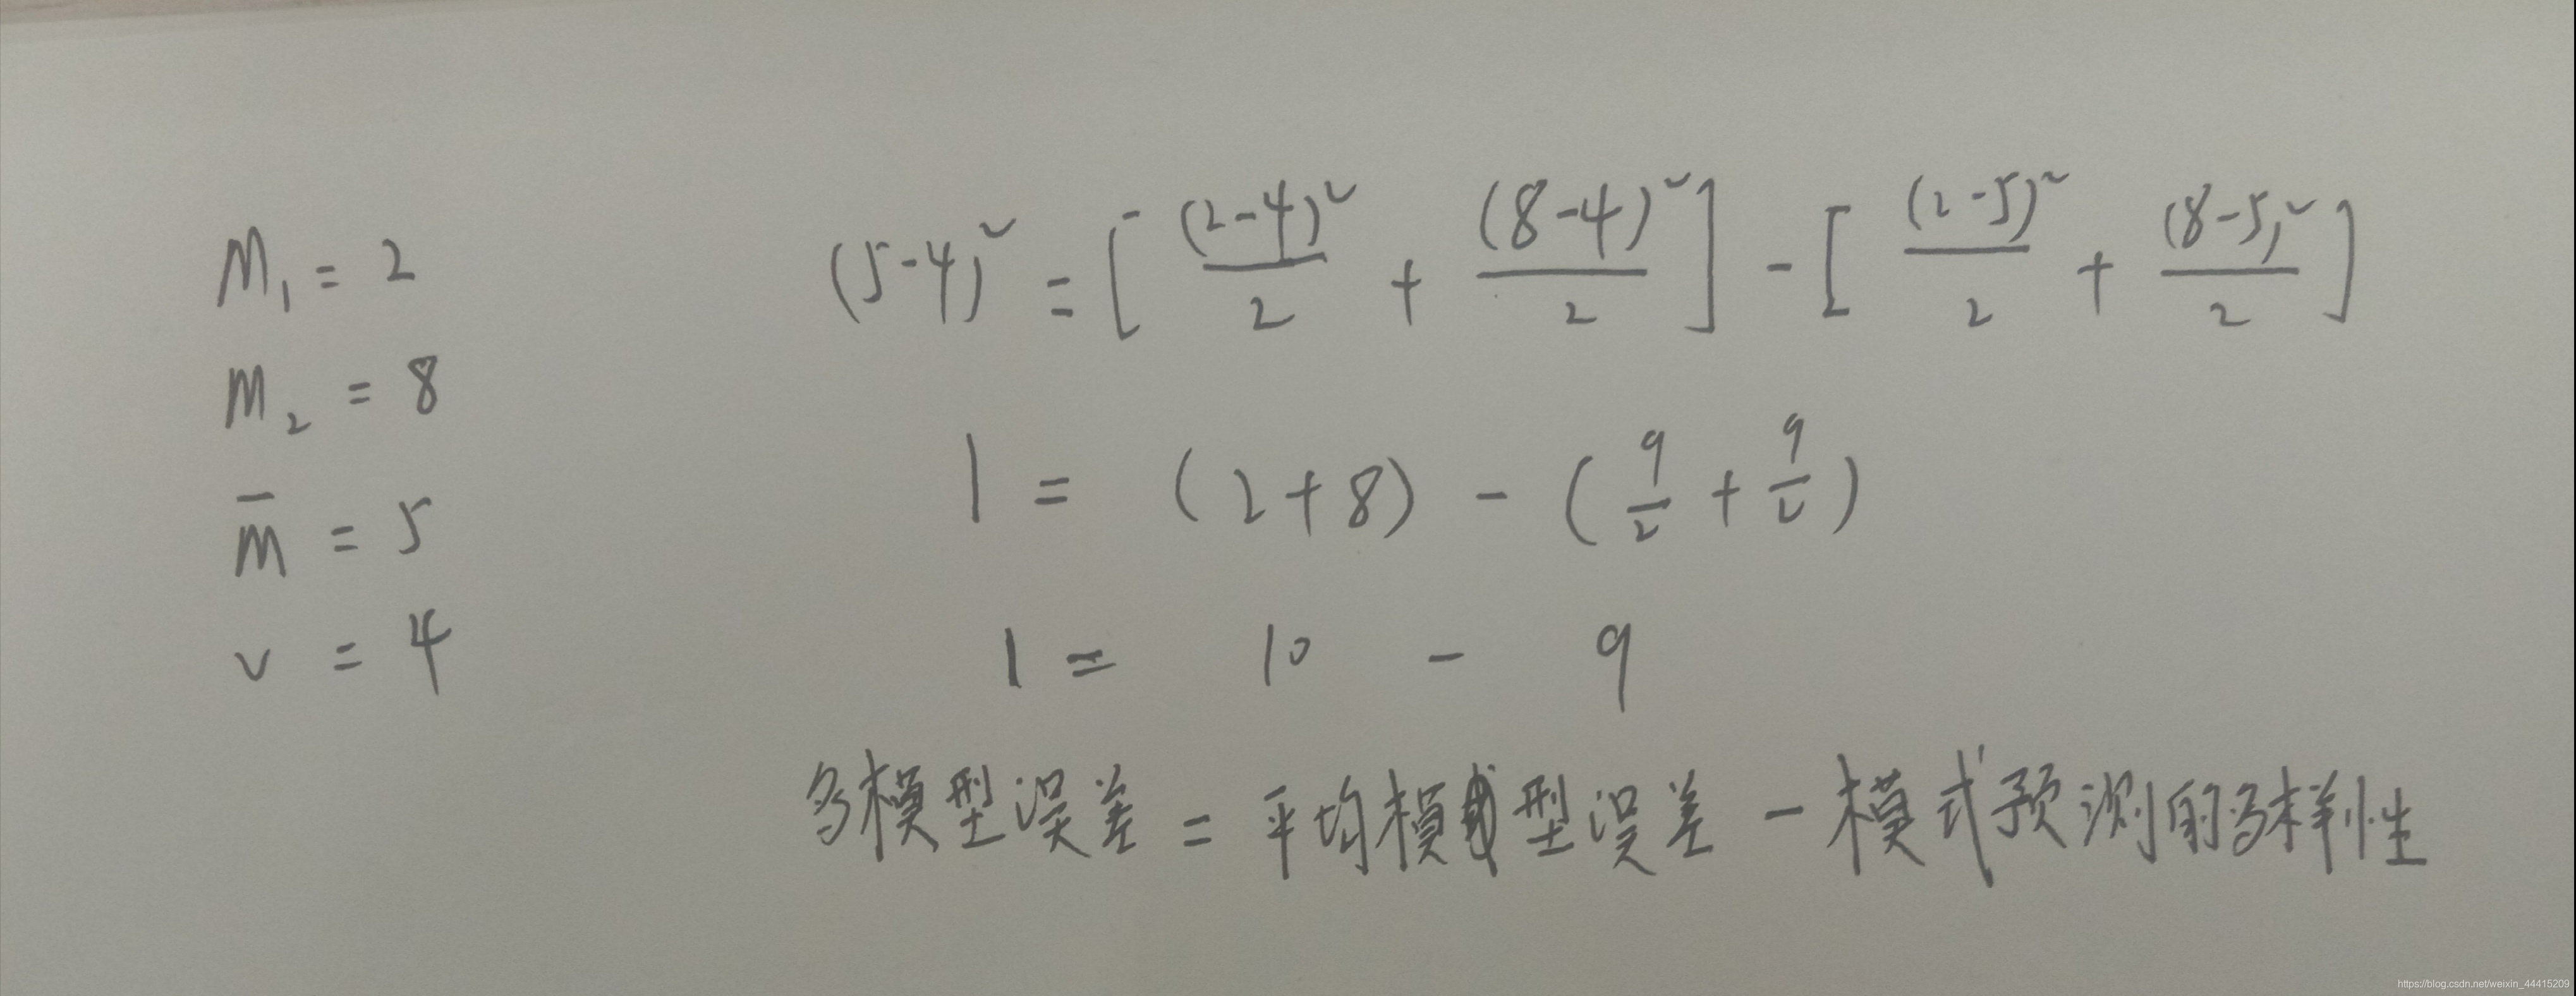 M₁ = 2
(5-4)² = [ (2-4)²/2 + (8-4)²/2 ] - [ (2-5)²/2 + (8-5)²/2 ]
m₂ = 8
1 = (2+8) - (9/2 + 9/2)
m̅ = 5
v = 4
1 = 10 - 9
多模型误差 = 平均模型误差 - 模式预测的多样性
https://blog.csdn.net/weixin_44415209